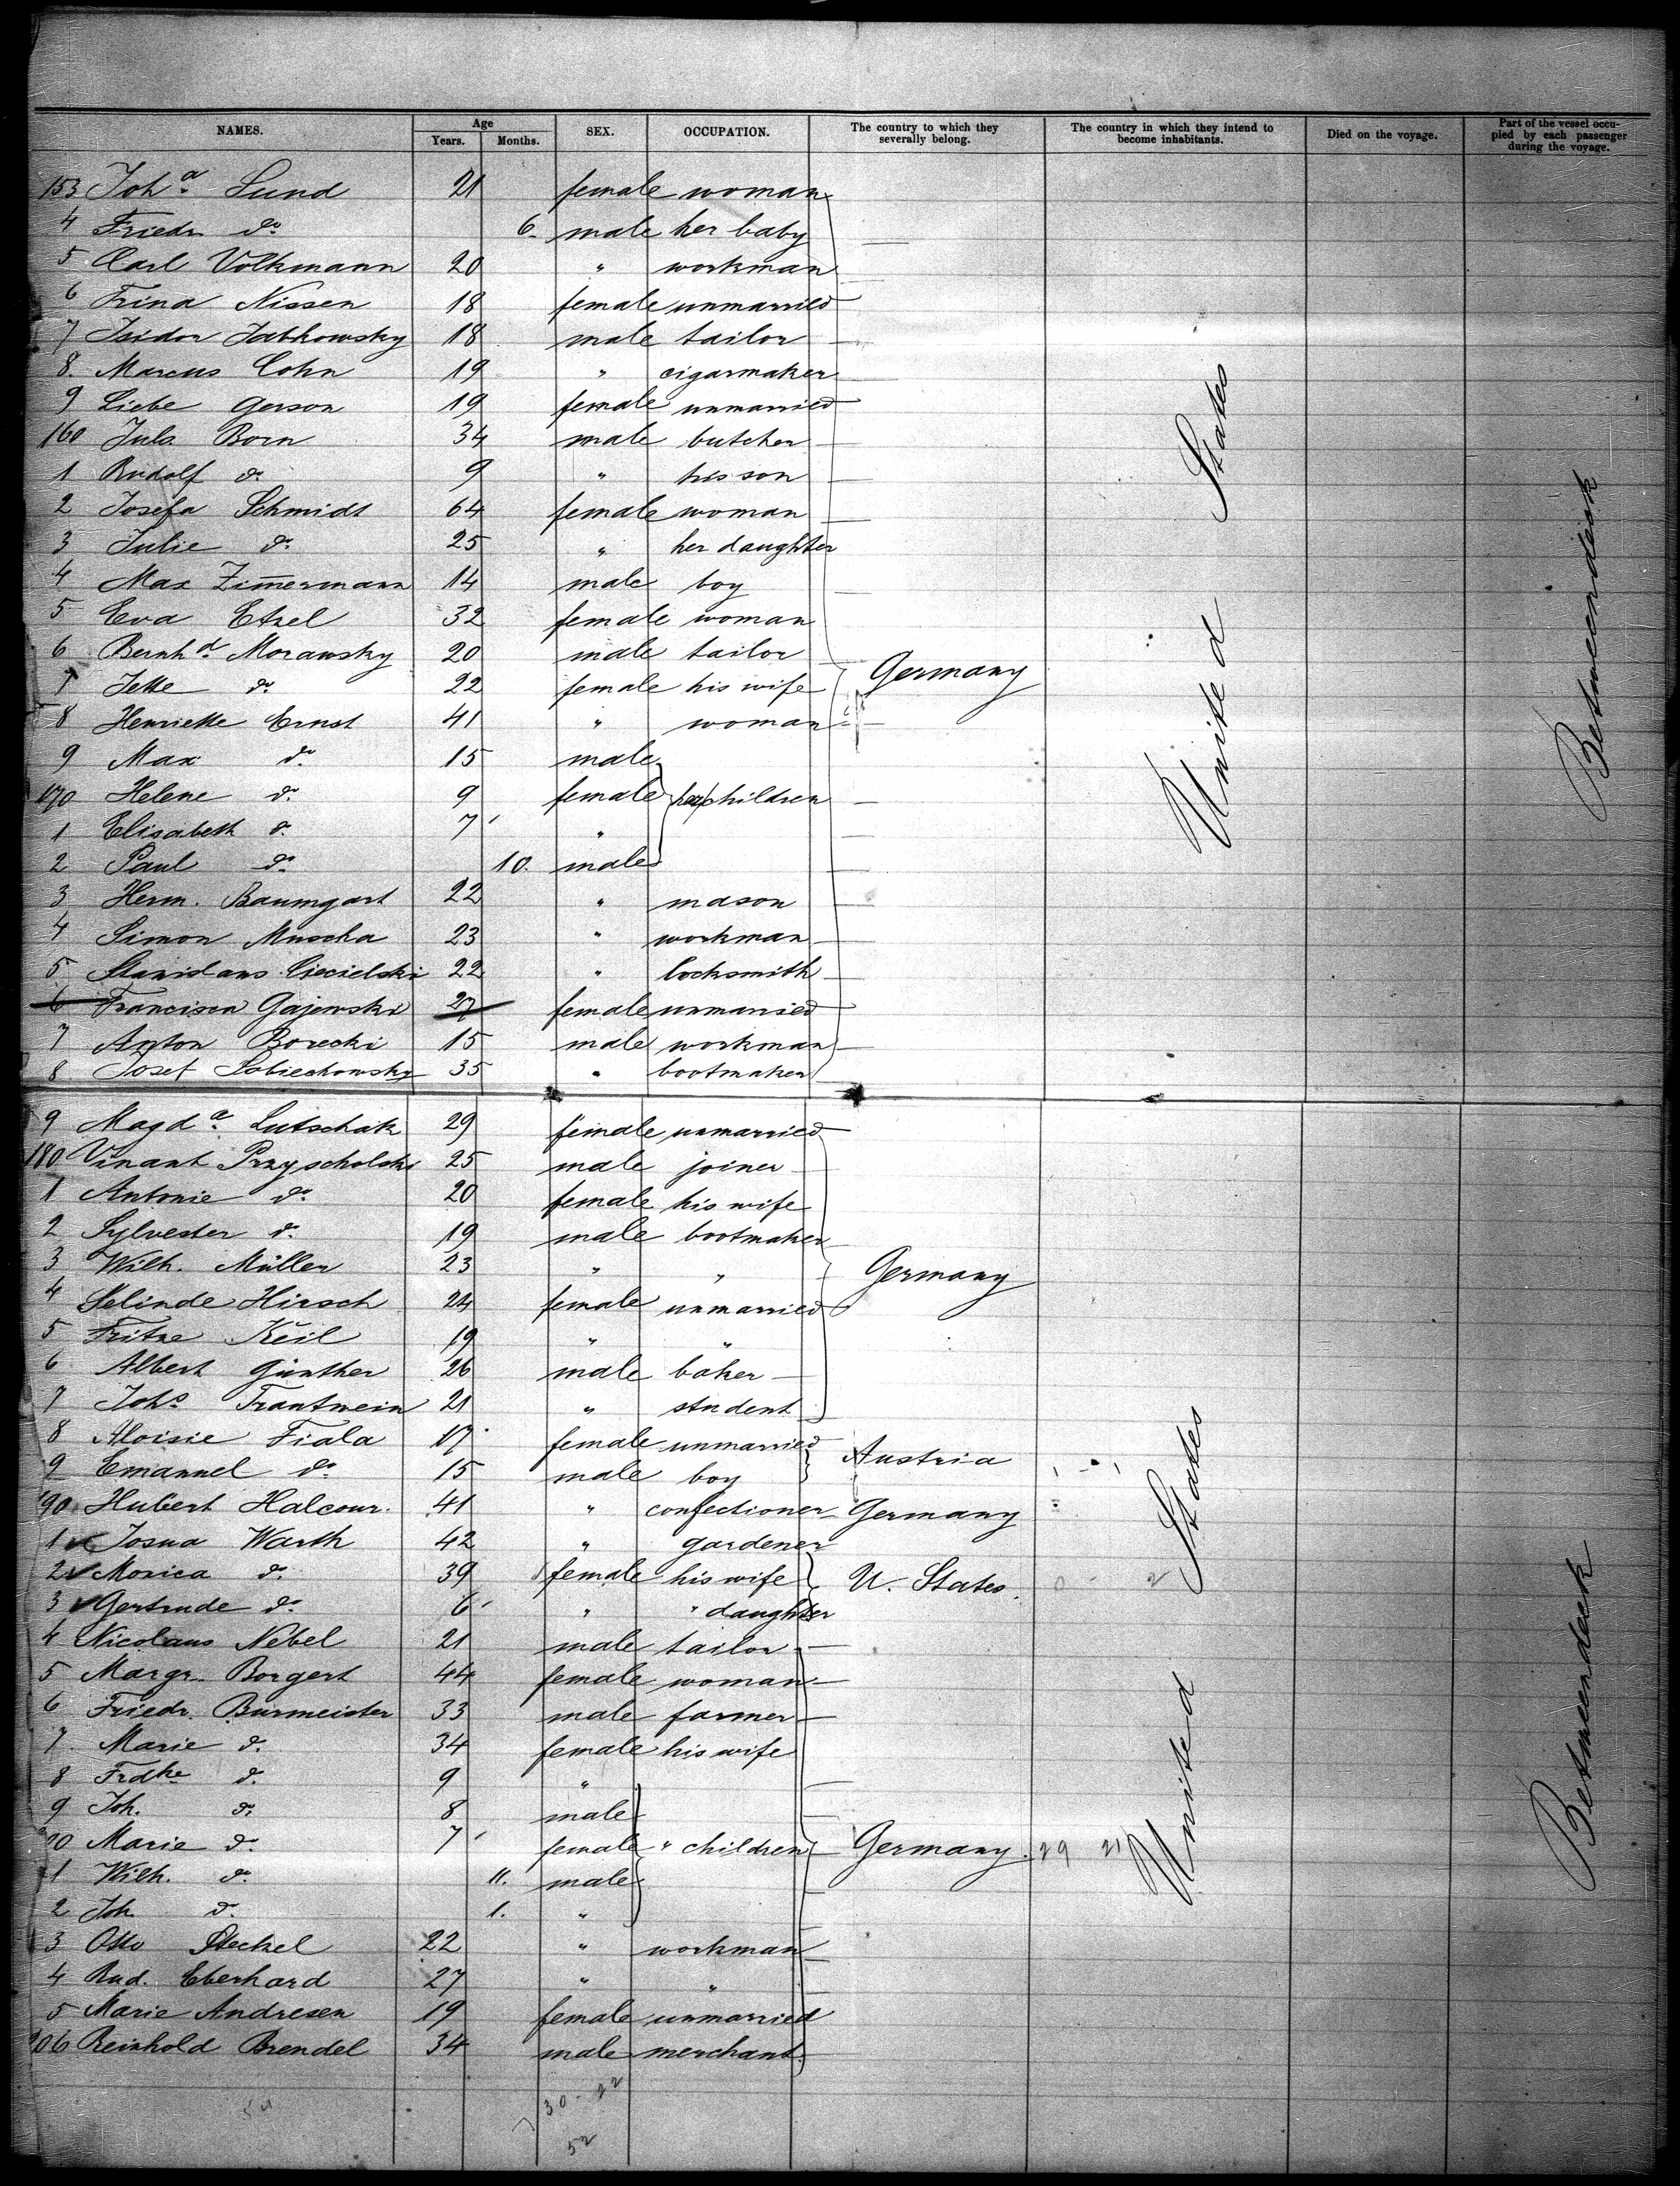 NAMES. Age SEX. OCCUPATION. The country to which they severally belong. The country in which they intend to become inhabitants. Died on the voyage. Part of the vessel occupied by each passenger during the voyage.
Years. Months.
153 Joha Lund 21 female woman
4 Friedr. do 6. male her baby
5 Carl Volkmann 20 " workman
6 Trina Nissen 18 female unmarried
7 Isidor Jabkowsky 18 male tailor
8. Marcus Cohn 19 " cigarmaker
9 Liebe Gerson 19 female unmarried
160 Juls. Born 34 male butcher
1 Rudolf do 9 " his son
2 Josefa Schmidt 64 female woman
3 Julie do 25 " her daughter
4 Max Zimermann 14 male boy
5 Eva Etzel 32 female woman
6 Bernhd Morawsky 20 male tailor
7 Jette do 22 female his wife Germany
8 Henriette Ernst 41 " woman
9 Max do 15 male
170 Helene do 9 female her children
1 Elisabeth do 7 "
2 Paul do 10. male
3 Herm. Baumgart 22 " mason
4 Simon Muscha 23 " workman
5 Stanislaus Ciecielski 22 " locksmith
6 Francisca Gajewski 27 female unmarried
7 Anton Borecki 15 male workman
8 Josef Sobiechowsky 35 " bootmaker
United States
Betweendeck
9 Magda Lutschak 29 female unmarried
180 Vinant Przyscholski 25 male joiner
1 Antonie do 20 female his wife
2 Sylvester do 19 male bootmaker
3 Wilh. Müller 23 " " Germany
4 Selinde Hirsch 24 female unmarried
5 Fritze Keil 19 " "
6 Albert Günther 26 male baker
7 Johs Trautwein 21 " student
8 Aloisie Fiala 17 female unmarried Austria
9 Emanuel do 15 male boy
190 Hubert Halcour. 41 " confectioner Germany
1 Josua Warth 42 " gardener
2 Monica do 39 female his wife U. States.
3 Gertrude do 6 " " daughter
4 Nicolaus Nebel 21 male tailor
5 Margr. Borgert 44 female woman
6 Friedr. Burmeister 33 male farmer
7. Marie do 34 female his wife
8 Frdke do 9 "
9 Joh. do 8 male
200 Marie do 7 female " children Germany. 29 21
1 Wilh. do 11. male
2 Joh do 1. "
3 Otto Steckel 22 " workman
4 Rud. Eberhard 27 " "
5 Marie Andresen 19 female unmarried
206 Reinhold Brendel 34 male merchant
United States
Betweendeck
30 - 22
52